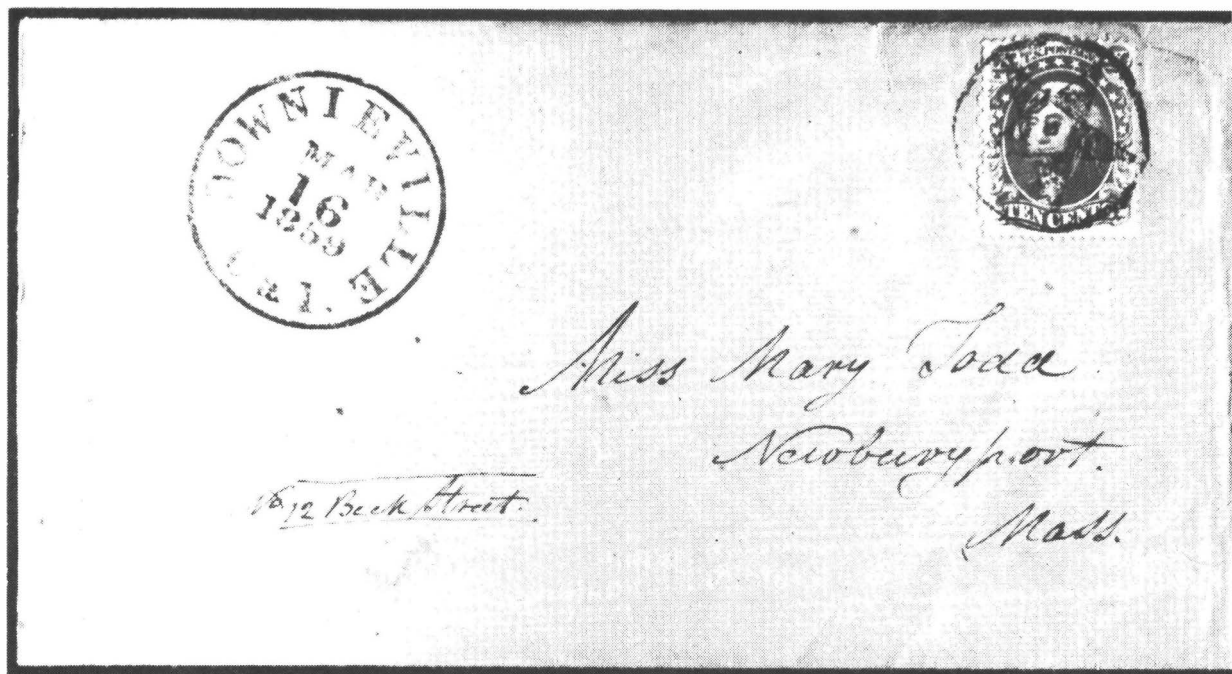 DOWNIEVILLE
Cal.
MAR
16
1859
U.S. POSTAGE
TEN CENTS
Miss Mary Todd
Newburyport.
Mass.
No 12 Beck Street.